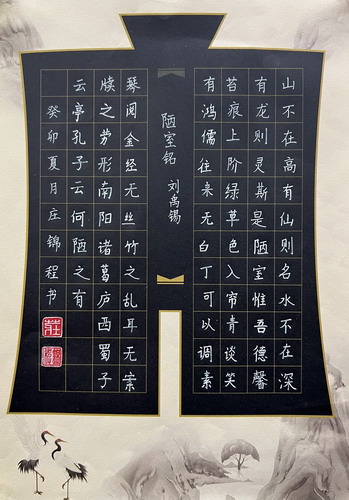 山不在高有仙则名水不在深
有龙则灵斯是陋室惟吾德馨
苔痕上阶绿草色入帘青谈笑
有鸿儒往来无白丁可以调素
陋室铭 刘禹锡
琴阅金经无丝竹之乱耳无案
牍之劳形南阳诸葛庐西蜀子
云亭孔子云何陋之有
癸卯夏月庄锦程书
莊